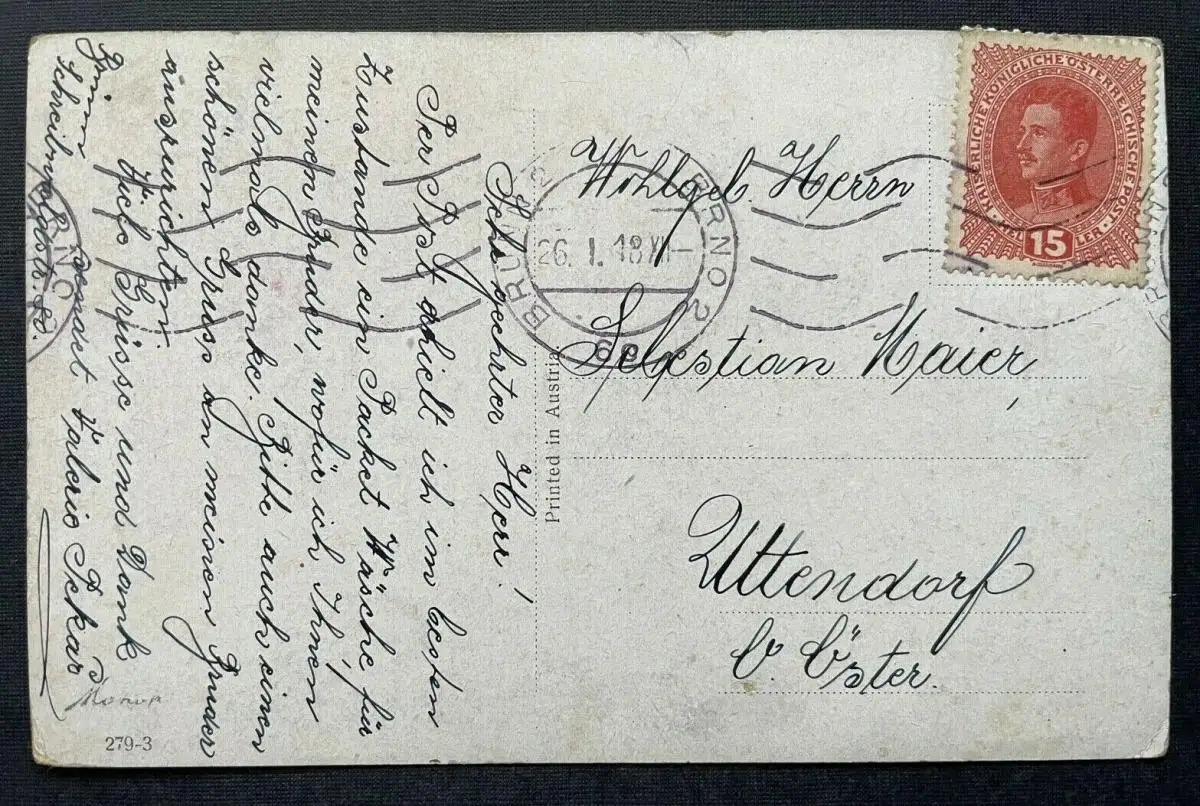 Sehr geehrter Herr!
Per Post erhielt ich im besten
Zustande ein Packet Wäsche für
meinen Bruder, wofür ich Ihnen
vielmals danke. Bitte auch einen
schönen Gruss an meinen Bruder
auszurichten.
Viele Grüsse und Dank
sendet Valerie Pekař
Brünn
279-3
Printed in Austria
Wohlgeb. Herrn
Sebestian Maier,
Uttendorf
O. Öster.
BRÜNN 2 BRNO 2
26. I. 18
BRNO
KAISERLICHE KÖNIGLICHE ÖSTERREICHISCHE POST
15
HELLER